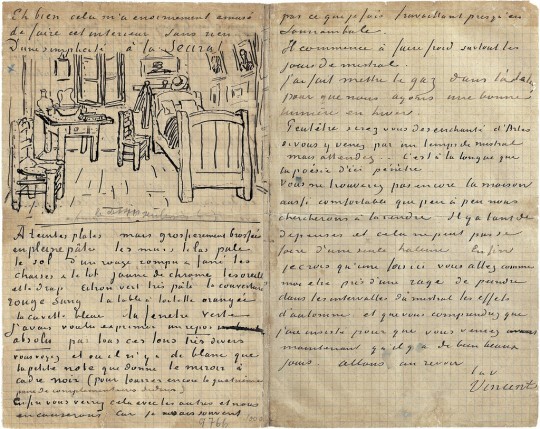 Eh bien cela m'a enormement amusé
de faire cet interieur sans rien
D'une simplicité à la Seurat
A teintes plates mais grossierement brossées
en pleine pâte les murs lilas pale
le sol d'un rouge rompu & fané les
chaises & le lit jaune de chrome les oreillers
et le drap citron vert très pâle la couverture
rouge sang la table à toilette orangée
la cuvette bleue la fenetre verte
J'avais voulu exprimer un repos
absolu par tous ces tons très divers
vous voyez et où il n'y a de blanc que
la petite note que donne le miroir à
cadre noir (pour fourrer encore la quatrième
paire de complementaires dedans)
Enfin vous verrez cela avec les autres et nous
en causerons car je sais souvent
pas ce que je fais travaillant presqu'en
somnambule.
Il commence à faire froid surtout les
jours de mistral.
J'ai fait mettre le gaz dans
pour que nous ayons une bonne
lumière en hiver.
Peut être serez vous désenchanté d'Arles
si vous y venez par un temps de mistral
mais attendez... C'est à la longue que
la poësie d'ici pénètre
vous ne trouverez pas encore la maison
aussi comfortable que peu à peu nous
chercherons à la rendre il y a tant de
depenses et cela ne peut pas se
faire d'une seule haleine Enfin
je crois qu'une fois ici vous allez comme
moi etre pris d'une rage de peindre
dans les intervalles du mistral les effets
d'automne et que vous comprendrez que
j'aie insisté pour que vous veniez
maintenant qu'il y a de bien beaux
jours allons au revoir
t. av.
Vincent